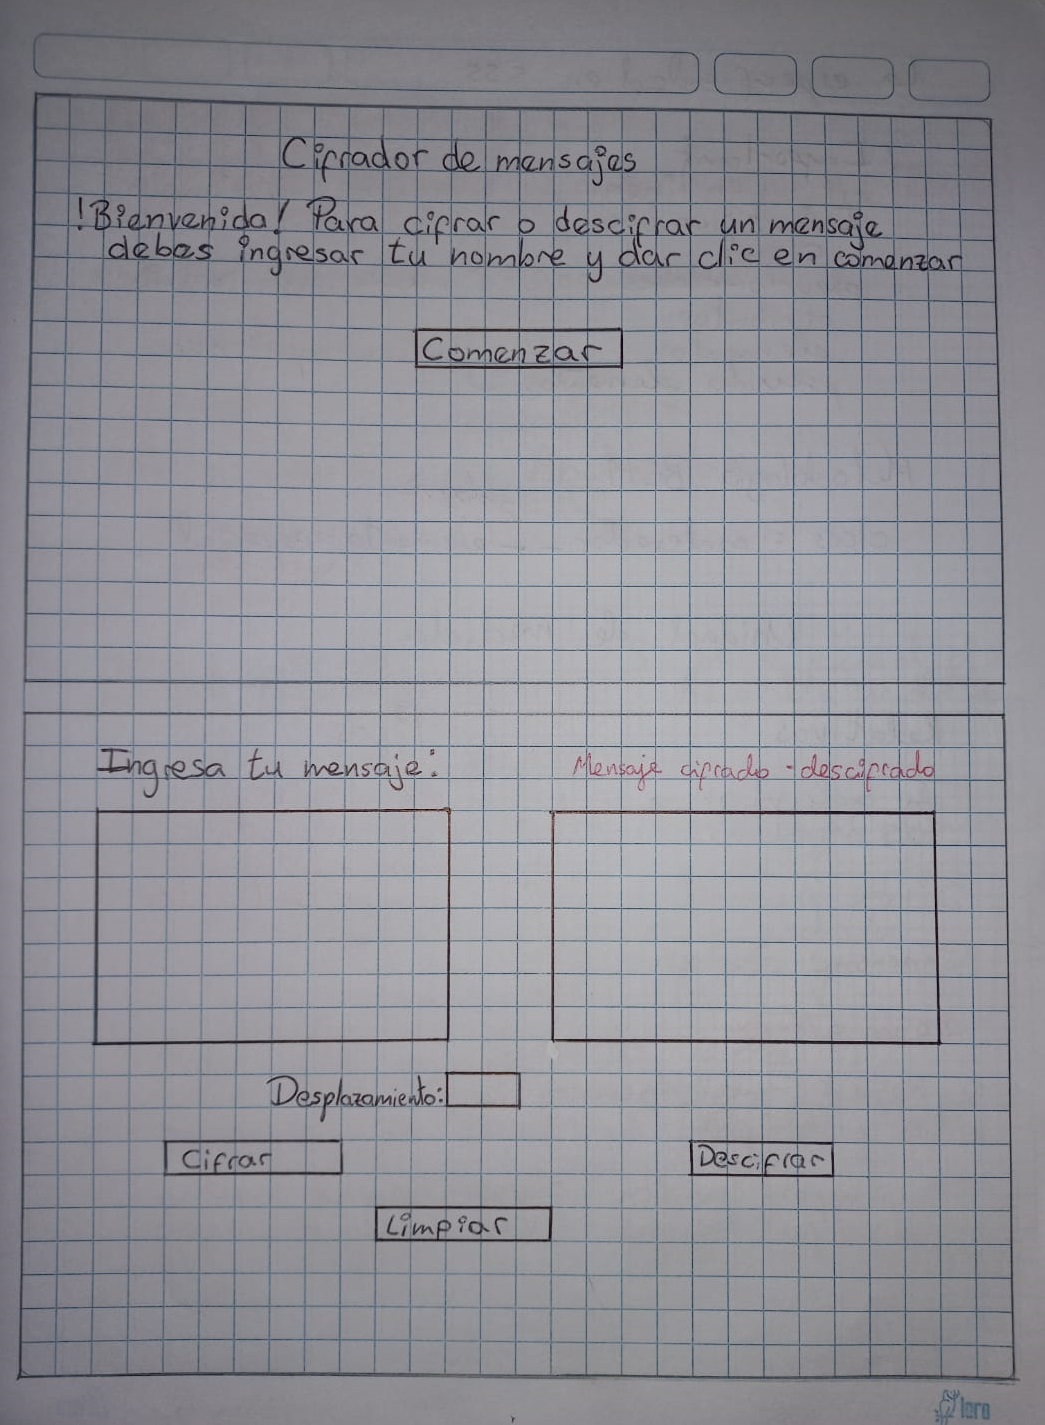 Cifrador de mensajes
!Bienvenida! Para cifrar o descifrar un mensaje
debes ingresar tu nombre y dar clic en comenzar
Comenzar
Ingresa tu mensaje:
Mensaje cifrado - descifrado
Desplazamiento:
Cifrar
Descifrar
Limpiar
loro